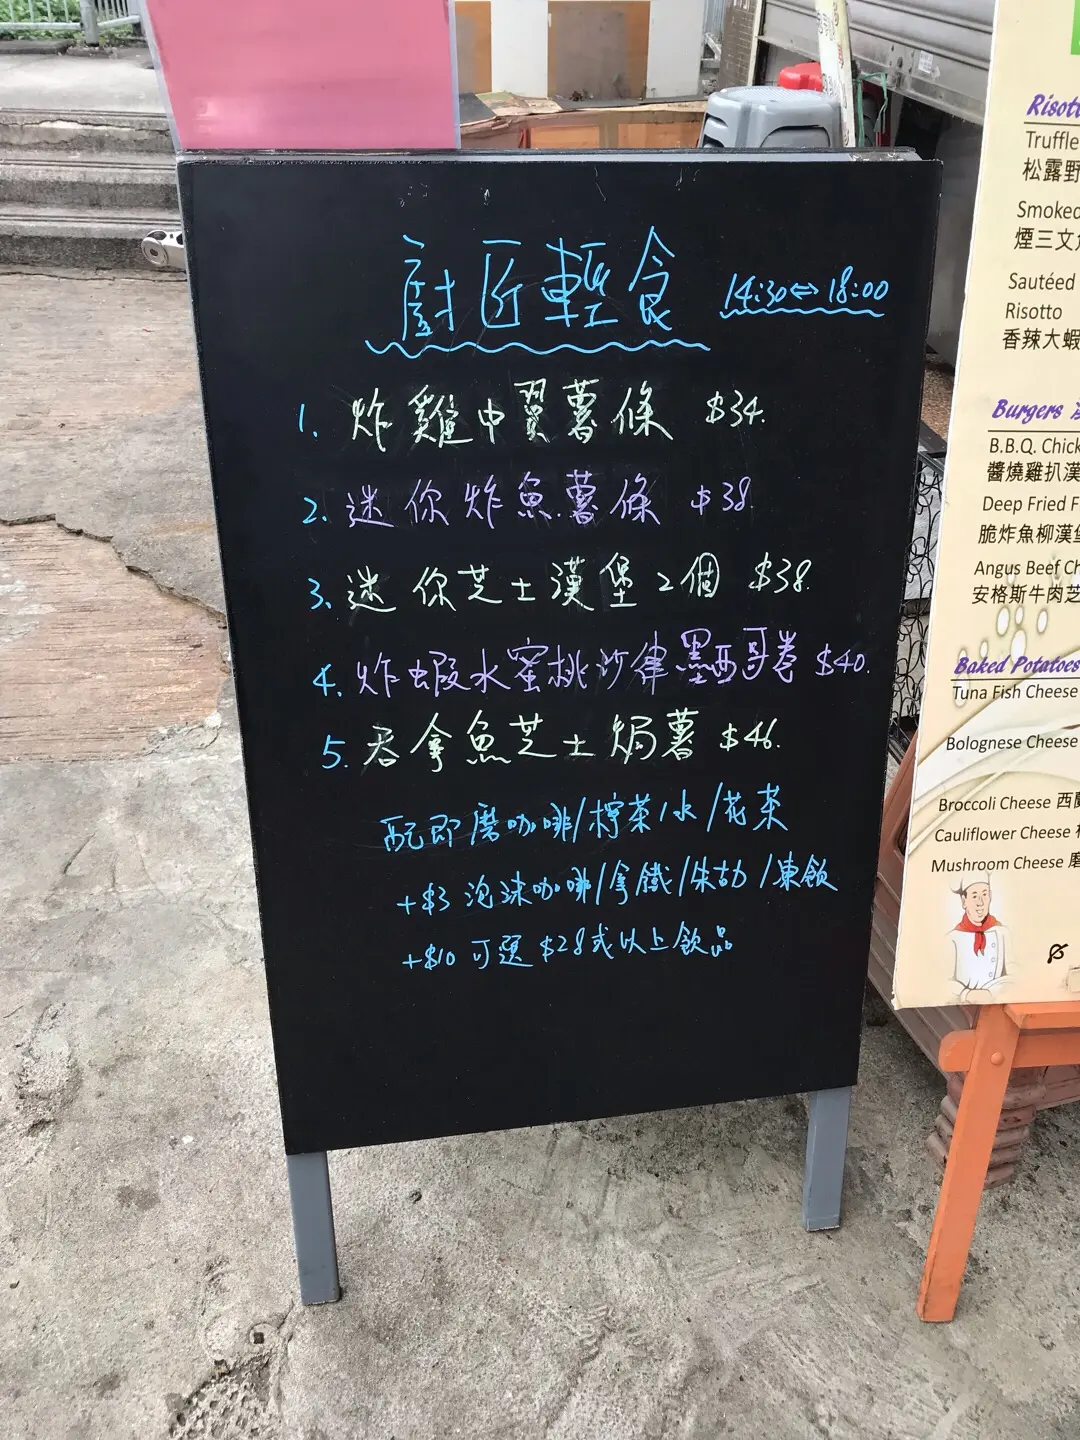 廚匠輕食 14:30⇔18:00
1. 炸雞中翼薯條 $34.
2. 迷你炸魚薯條 $38
3. 迷你芝士漢堡2個 $38.
4. 炸蝦水蜜桃沙律墨西哥卷 $40.
5. 吞拿魚芝士焗薯 $46.
配即磨咖啡/檸茶/水/花茶
+$3 泡沫咖啡/拿鐵/朱古力/凍飲
+$10 可選 $28或以上飲品
Risott
Truffle
松露野
Smoked
煙三文魚
Sautéed
Risotto
香辣大蝦
Burgers 漢
B.B.Q. Chick
醬燒雞扒漢
Deep Fried F
脆炸魚柳漢堡
Angus Beef Ch
安格斯牛肉芝
Baked Potatoes
Tuna Fish Cheese
Bolognese Cheese
Broccoli Cheese 西蘭
Cauliflower Cheese
Mushroom Cheese 磨